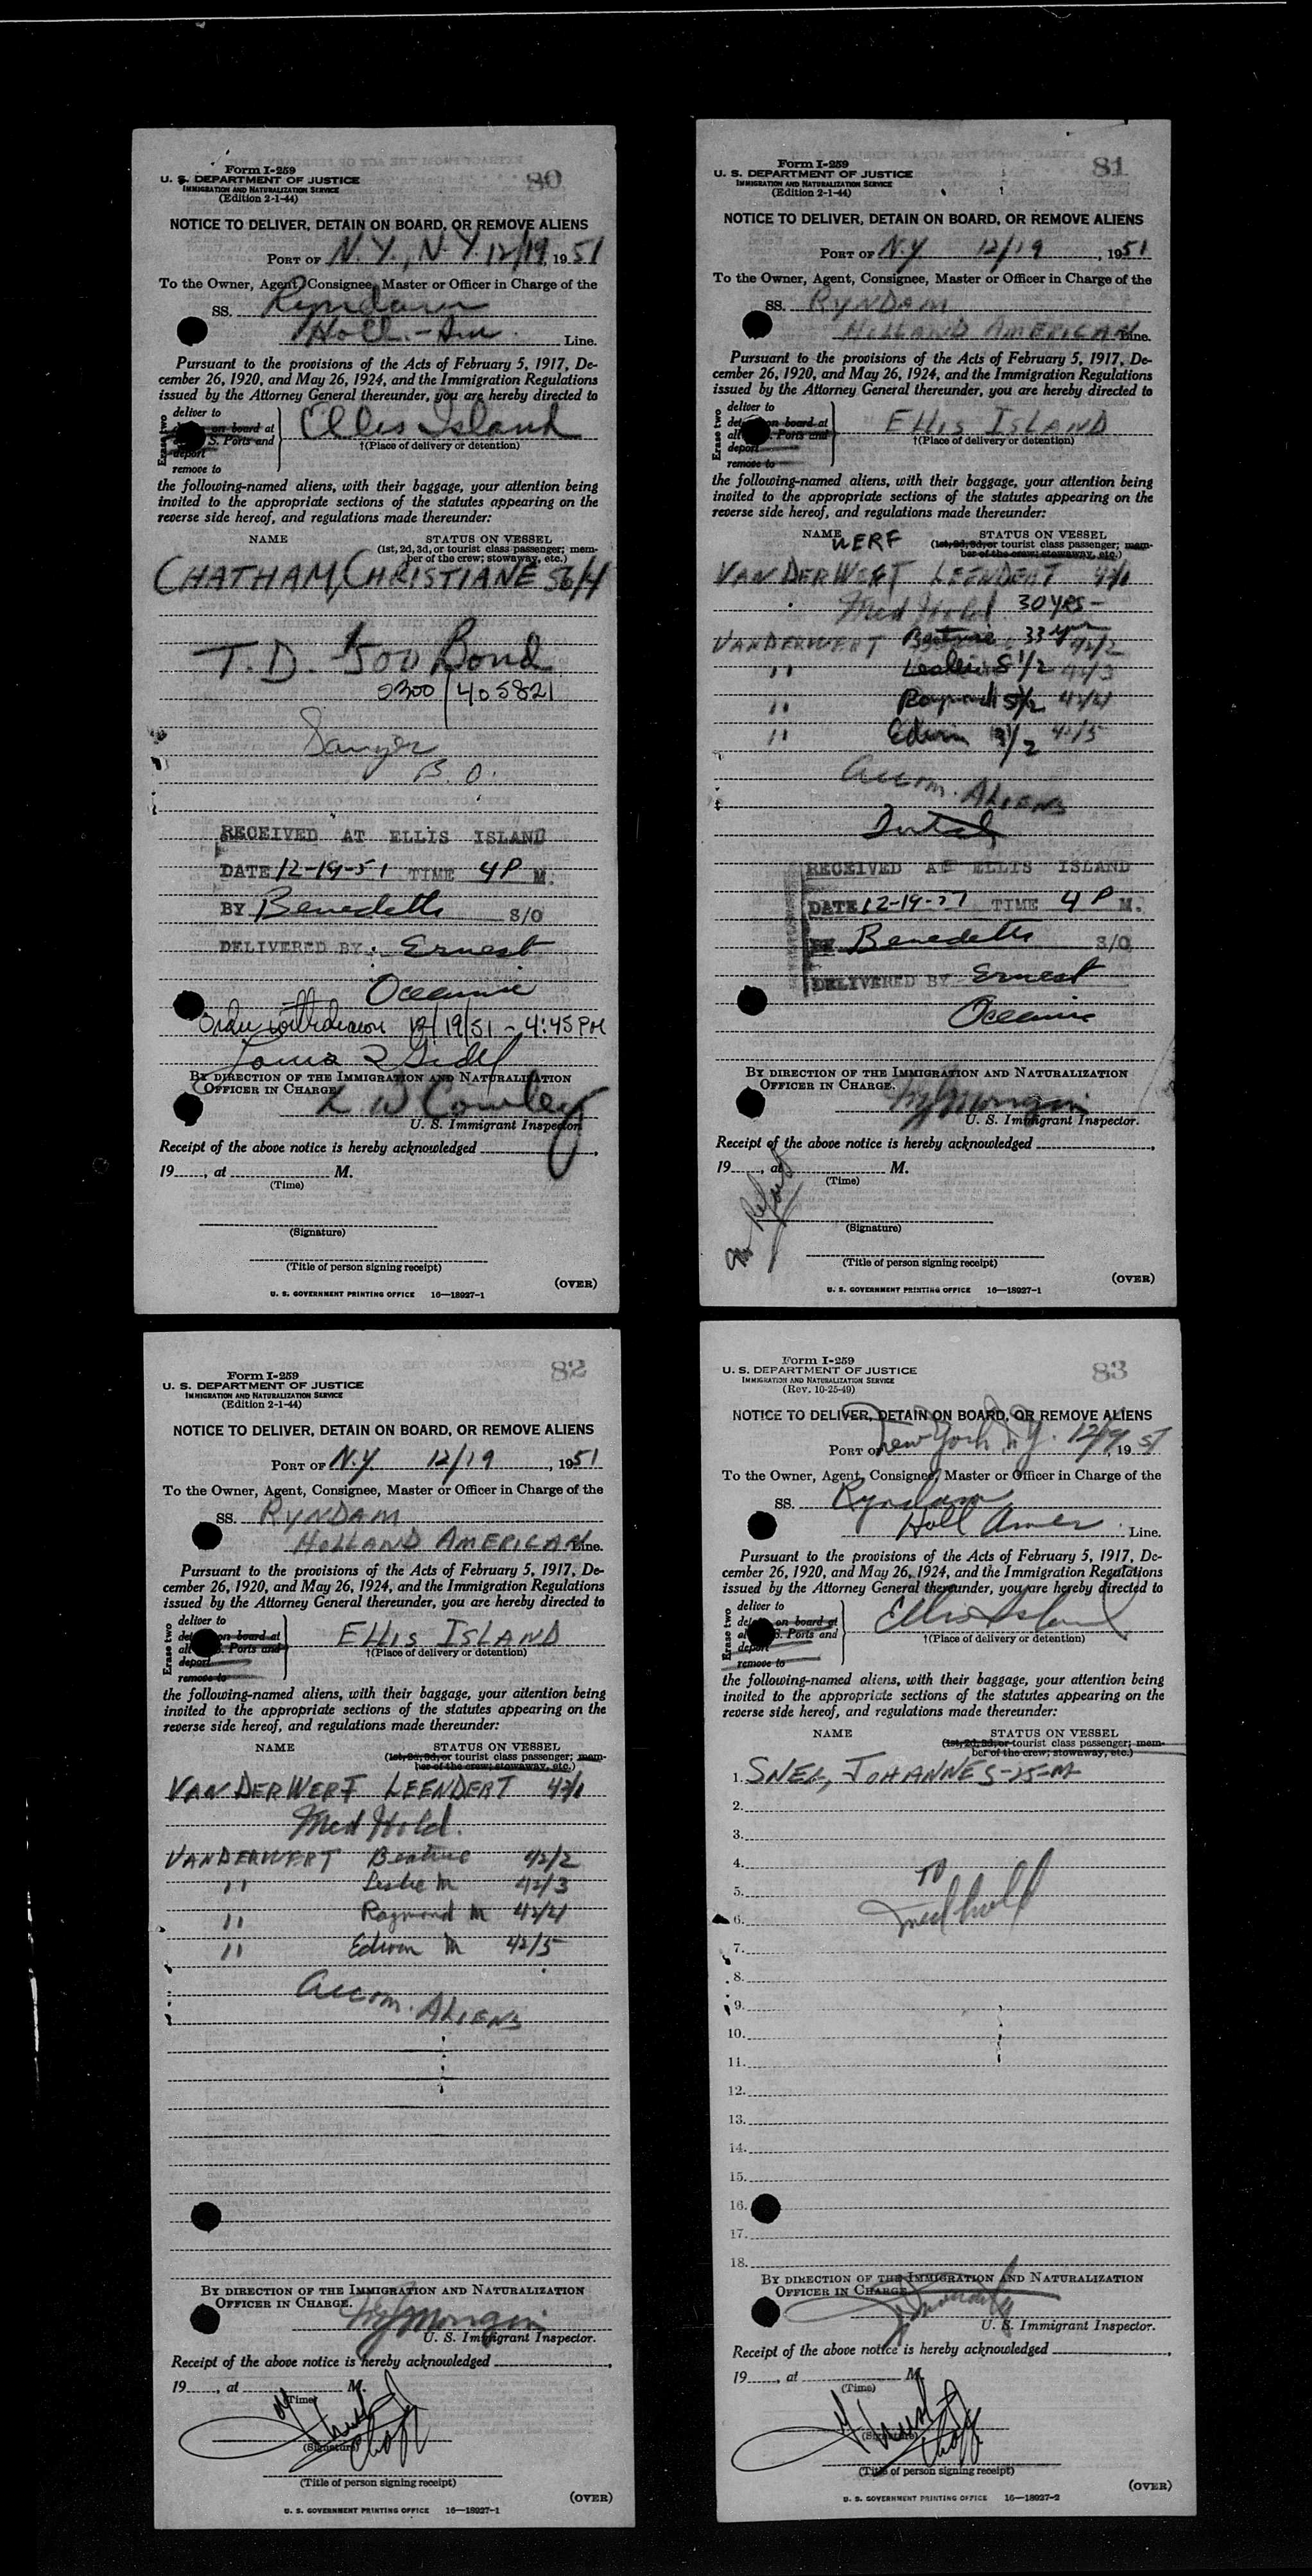 80
Form I-259
U. S. DEPARTMENT OF JUSTICE
IMMIGRATION AND NATURALIZATION SERVICE
(Edition 2-1-44)
NOTICE TO DELIVER, DETAIN ON BOARD, OR REMOVE ALIENS
PORT OF N.Y., N.Y. 12/19, 1951
To the Owner, Agent, Consignee, Master or Officer in Charge of the
SS. Ryndam
Holl.-Am. Line.
Pursuant to the provisions of the Acts of February 5, 1917, De-
cember 26, 1920, and May 26, 1924, and the Immigration Regulations
issued by the Attorney General thereunder, you are hereby directed to
Erase two
deliver to
on board at
S. Ports and
deport
remove to
Ellis Island
†(Place of delivery or detention)
the following-named aliens, with their baggage, your attention being
invited to the appropriate sections of the statutes appearing on the
reverse side hereof, and regulations made thereunder:
NAME STATUS ON VESSEL
(1st, 2d, 3d, or tourist class passenger; mem-
ber of the crew; stowaway, etc.)
CHATHAM, CHRISTIANE 56/4
T.D. $500 Bond
0300/405821
B.O.
RECEIVED AT ELLIS ISLAND
DATE 12-19-51 TIME 4 P M.
BY Benedetti S/O
DELIVERED BY: Ernest
Oceanic
Order withdrawn 12/19/51 - 4:45 PM
Louis
BY DIRECTION OF THE IMMIGRATION AND NATURALIZATION
OFFICER IN CHARGE.
Cowley
U. S. Immigrant Inspector.
Receipt of the above notice is hereby acknowledged
19, at M.
(Time)
(Signature)
(Title of person signing receipt)
(OVER)
U. S. GOVERNMENT PRINTING OFFICE 16—18927-1
81
Form I-259
U. S. DEPARTMENT OF JUSTICE
IMMIGRATION AND NATURALIZATION SERVICE
(Edition 2-1-44)
NOTICE TO DELIVER, DETAIN ON BOARD, OR REMOVE ALIENS
PORT OF N.Y 12/19, 1951
To the Owner, Agent, Consignee, Master or Officer in Charge of the
SS. RYNDAM
HOLLAND AMERICAN Line.
Pursuant to the provisions of the Acts of February 5, 1917, De-
cember 26, 1920, and May 26, 1924, and the Immigration Regulations
issued by the Attorney General thereunder, you are hereby directed to
Erase two
deliver to
on board at
Ports and
deport
remove to
ELLIS ISLAND
†(Place of delivery or detention)
the following-named aliens, with their baggage, your attention being
invited to the appropriate sections of the statutes appearing on the
reverse side hereof, and regulations made thereunder:
NAME STATUS ON VESSEL
WERF (1st, 2d, 3d, or tourist class passenger; mem-
ber of the crew; stowaway, etc.)
VAN DER WERT LEENDERT 42/1
Med Hold 30 YRS-
VANDERWERT Beatrice 33 yrs 42/2
" Leslie 8 1/2 42/3
" Raymond 5 1/2 42/4
" Edwin 3 1/2 42/5
Accom. ALIENS
Dutch
RECEIVED AT ELLIS ISLAND
DATE 12-19-51 TIME 4 P M.
BY Benedetti S/O
DELIVERED BY Ernest
Oceanic
BY DIRECTION OF THE IMMIGRATION AND NATURALIZATION
OFFICER IN CHARGE.
U. S. Immigrant Inspector.
Receipt of the above notice is hereby acknowledged
19, at M.
(Time)
(Signature)
(Title of person signing receipt)
(OVER)
U. S. GOVERNMENT PRINTING OFFICE 16—18927-1
82
Form I-259
U. S. DEPARTMENT OF JUSTICE
IMMIGRATION AND NATURALIZATION SERVICE
(Edition 2-1-44)
NOTICE TO DELIVER, DETAIN ON BOARD, OR REMOVE ALIENS
PORT OF N.Y. 12/19, 1951
To the Owner, Agent, Consignee, Master or Officer in Charge of the
SS. RYNDAM
HOLLAND AMERICAN Line.
Pursuant to the provisions of the Acts of February 5, 1917, De-
cember 26, 1920, and May 26, 1924, and the Immigration Regulations
issued by the Attorney General thereunder, you are hereby directed to
Erase two
deliver to
on board at
Ports and
deport
remove to
ELLIS ISLAND
†(Place of delivery or detention)
the following-named aliens, with their baggage, your attention being
invited to the appropriate sections of the statutes appearing on the
reverse side hereof, and regulations made thereunder:
NAME STATUS ON VESSEL
(1st, 2d, 3d, or tourist class passenger; mem-
ber of the crew; stowaway, etc.)
VAN DER WERF LEENDERT 42/1
Med Hold.
VANDERWERT Beatrice 42/2
" Leslie M 42/3
" Raymond M 42/4
" Edwin M 42/5
Accom. ALIENS
BY DIRECTION OF THE IMMIGRATION AND NATURALIZATION
OFFICER IN CHARGE.
U. S. Immigrant Inspector.
Receipt of the above notice is hereby acknowledged
19, at M.
(Time)
(Signature)
(Title of person signing receipt)
(OVER)
U. S. GOVERNMENT PRINTING OFFICE 16—18927-1
83
Form I-259
U. S. DEPARTMENT OF JUSTICE
IMMIGRATION AND NATURALIZATION SERVICE
(Rev. 10-25-49)
NOTICE TO DELIVER, DETAIN ON BOARD, OR REMOVE ALIENS
PORT OF New York N.Y. 12/19, 1951
To the Owner, Agent, Consignee, Master or Officer in Charge of the
SS. Ryndam
Holl Amer Line.
Pursuant to the provisions of the Acts of February 5, 1917, De-
cember 26, 1920, and May 26, 1924, and the Immigration Regulations
issued by the Attorney General thereunder, you are hereby directed to
Erase two
deliver to
on board at
S. Ports and
deport
remove to
Ellis Island
†(Place of delivery or detention)
the following-named aliens, with their baggage, your attention being
invited to the appropriate sections of the statutes appearing on the
reverse side hereof, and regulations made thereunder:
NAME STATUS ON VESSEL
(1st, 2d, 3d, or tourist class passenger; mem-
ber of the crew; stowaway, etc.)
1. SNEL, JOHANNES-25-M
2.
3.
4. TD
5.
6. med hold
7.
8.
9.
10.
11.
12.
13.
14.
15.
16.
17.
18.
BY DIRECTION OF THE IMMIGRATION AND NATURALIZATION
OFFICER IN CHARGE.
U. S. Immigrant Inspector.
Receipt of the above notice is hereby acknowledged
19, at M.
(Time)
(Signature)
(Title of person signing receipt)
(OVER)
U. S. GOVERNMENT PRINTING OFFICE 16—18927-2